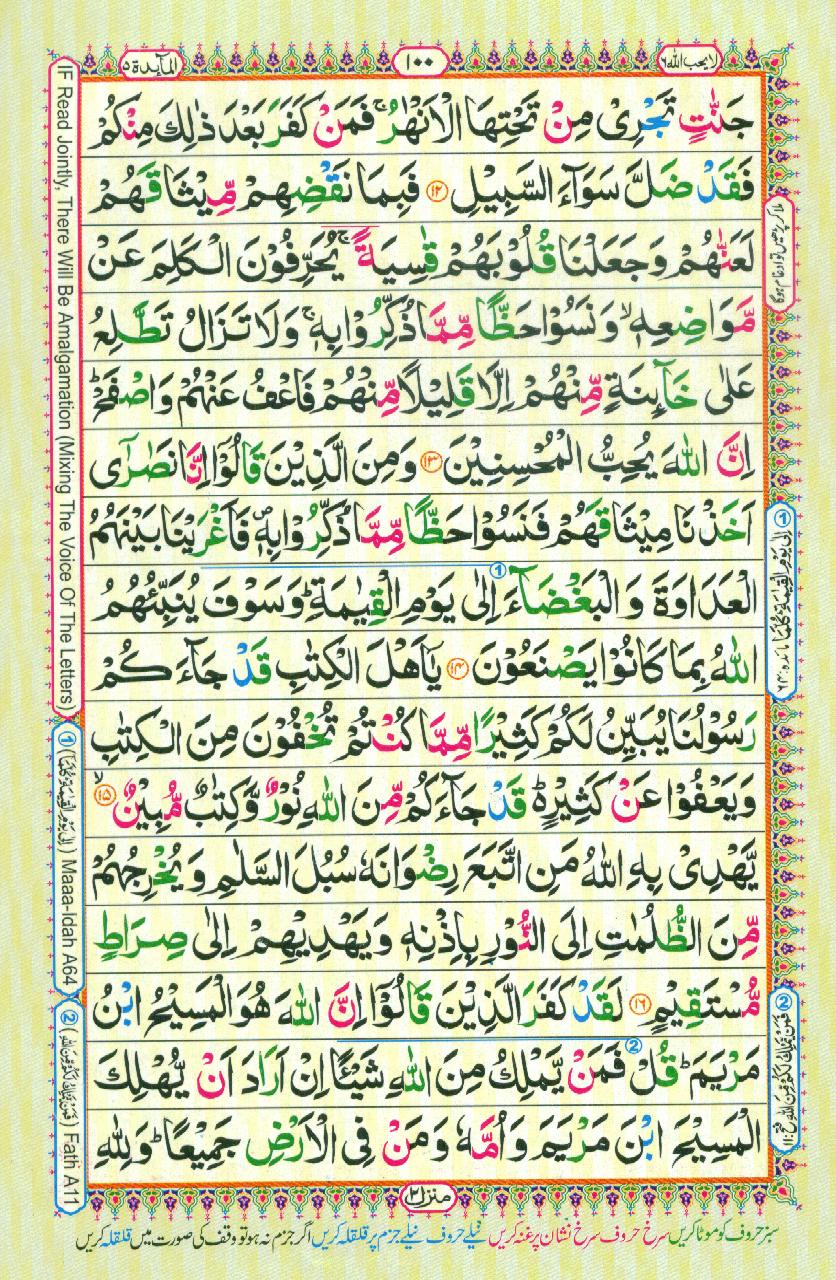 لا یحب الله ۶
۱۰۰
المآىٕدة ۵
جَنّٰتٍ تَجْرِیْ مِنْ تَحْتِهَا الْاَنْهٰرُ ۚ فَمَنْ كَفَرَ بَعْدَ ذٰلِكَ مِنْكُمْ
فَقَدْ ضَلَّ سَوَآءَ السَّبِیْلِ ﴿۱۲﴾ فَبِمَا نَقْضِهِمْ مِّیْثَاقَهُمْ
لَعَنّٰهُمْ وَ جَعَلْنَا قُلُوْبَهُمْ قٰسِیَةً ۚ یُحَرِّفُوْنَ الْكَلِمَ عَنْ
مَّوَاضِعِهٖ ۙ وَ نَسُوْا حَظًّا مِّمَّا ذُكِّرُوْا بِهٖ ۚ وَ لَا تَزَالُ تَطَّلِعُ
عَلٰی خَآىِٕنَةٍ مِّنْهُمْ اِلَّا قَلِیْلًا مِّنْهُمْ فَاعْفُ عَنْهُمْ وَ اصْفَحْ ؕ
اِنَّ اللّٰهَ یُحِبُّ الْمُحْسِنِیْنَ ﴿۱۳﴾ وَ مِنَ الَّذِیْنَ قَالُوْۤا اِنَّا نَصٰرٰۤی
اَخَذْنَا مِیْثَاقَهُمْ فَنَسُوْا حَظًّا مِّمَّا ذُكِّرُوْا بِهٖ ۪ فَاَغْرَیْنَا بَیْنَهُمُ
الْعَدَاوَةَ وَ الْبَغْضَآءَ اِلٰی یَوْمِ الْقِیٰمَةِ ؕ وَ سَوْفَ یُنَبِّئُهُمُ
اللّٰهُ بِمَا كَانُوْا یَصْنَعُوْنَ ﴿۱۴﴾ یٰۤاَهْلَ الْكِتٰبِ قَدْ جَآءَكُمْ
رَسُوْلُنَا یُبَیِّنُ لَكُمْ كَثِیْرًا مِّمَّا كُنْتُمْ تُخْفُوْنَ مِنَ الْكِتٰبِ
وَ یَعْفُوْا عَنْ كَثِیْرٍ ؕ۬ قَدْ جَآءَكُمْ مِّنَ اللّٰهِ نُوْرٌ وَّ كِتٰبٌ مُّبِیْنٌ ﴿ۙ۱۵﴾
یَّهْدِیْ بِهِ اللّٰهُ مَنِ اتَّبَعَ رِضْوَانَهٗ سُبُلَ السَّلٰمِ وَ یُخْرِجُهُمْ
مِّنَ الظُّلُمٰتِ اِلَی النُّوْرِ بِاِذْنِهٖ وَ یَهْدِیْهِمْ اِلٰی صِرَاطٍ
مُّسْتَقِیْمٍ ﴿۱۶﴾ لَقَدْ كَفَرَ الَّذِیْنَ قَالُوْۤا اِنَّ اللّٰهَ هُوَ الْمَسِیْحُ ابْنُ
مَرْیَمَ ؕ قُلْ فَمَنْ یَّمْلِكُ مِنَ اللّٰهِ شَیْـًٔا اِنْ اَرَادَ اَنْ یُّهْلِكَ
الْمَسِیْحَ ابْنَ مَرْیَمَ وَ اُمَّهٗ وَ مَنْ فِی الْاَرْضِ جَمِیْعًا ؕ وَ لِلّٰهِ
منزل ۲
سبز حروف کو موٹا کریں سرخ حروف سرخ نشان پر غنہ کریں نیلے حروف نیلے جزم پر قلقلہ کریں اگر جزم نہ ہو تو وقف کی صورت میں قلقلہ کریں
IF Read Jointly, There Will Be Amalgamation (Mixing The Voice Of The Letters)
① (اِلٰی یَوْمِ الْقِیٰمَةِ كُلَّمَا) Maaa-Idah A64
② (فَمَنْ یَّمْلِكُ لَكُمْ مِّنَ اللّٰهِ) Fath A11
① اِلٰی یَوْمِ الْقِیٰمَةِ كُلَّمَا مائده: ۶۴
② فَمَنْ یَّمْلِكُ لَكُمْ مِّنَ اللّٰهِ فتح: ۱۱